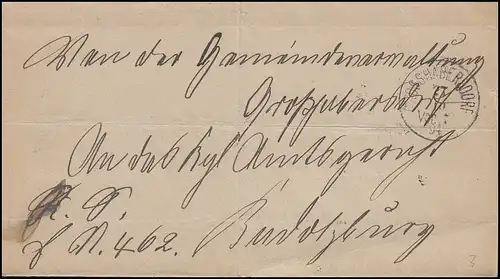 Von der Gemeindeverwaltung
Großhabersdorf
GROSSHABERSDORF
An das Kgl. Amtsgericht
K. S.
N. 462. Kadolzburg
3